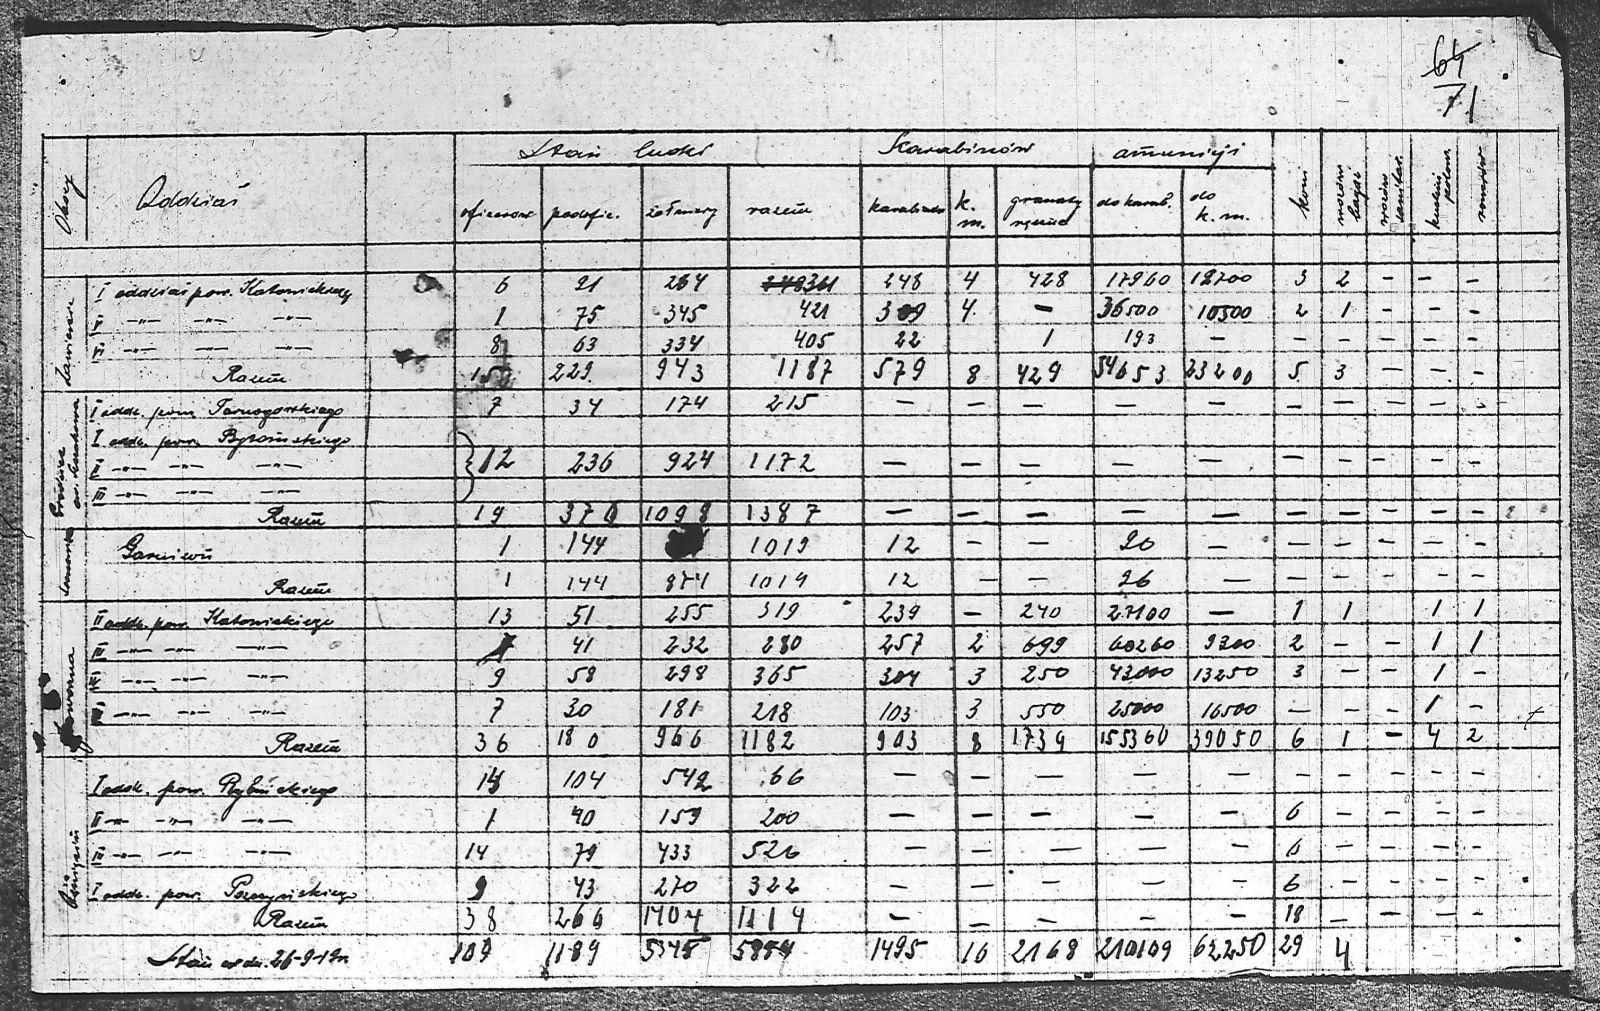 64
71
Stan ludzi Karabinów amunicji
Obozy Oddział oficerów podofic. żołnierzy razem karabinów k. m. granaty ręczne do karab. do k. m. koni
I oddział pow. Katowickiego 6 91 264 361 248 4 428 17960 12700 3 2 - - -
V -„- -„- -„- 1 75 345 421 309 4 - 36500 10500 2 1 - - -
VI -„- -„- -„- 8 63 334 405 22 1 193 - - - - - -
Razem 15 229 943 1187 579 8 429 54653 23200 5 3 - - -
I oddz. pow. Tarnogórskiego 7 34 174 215 - - - - - - - - - -
I oddz. pow. Bytomskiego
II -„- -„- -„- 12 236 924 1172 - - - - - - - - - -
III -„- -„- -„-
Razem 19 370 1098 1387 - - - - - - - - - -
Garnizon 1 144 1019 12 - - 20 - - - - - -
Razem 1 144 874 1019 12 - - 26 - - - - - -
II oddz. pow. Katowickiego 13 51 255 319 239 - 240 27100 - 1 1 1 1
III -„- -„- -„- 7 41 232 280 257 2 699 60260 9300 2 - - 1 1
-„- -„- -„- 9 58 298 365 304 3 250 43000 13250 3 - - 1 -
-„- -„- -„- 7 30 181 218 103 3 550 25000 16500 - - - 1 -
Razem 36 180 966 1182 903 8 1739 155360 39050 6 1 - 4 2
I oddz. pow. Rybnickiego 14 104 542 66 - - - - - - - - - -
II -„- -„- -„- 1 40 159 200 - - - - - 6 - - - -
III -„- -„- -„- 14 79 433 526 - - - - - 6 - - - -
I oddz. pow. Pszczyńskiego 9 43 270 322 - - - - - 6 - - - -
Razem 38 266 1404 1114 - - - - - 18 - - - -
Stan w dn. 26-9-19r. 109 1189 1495 16 2168 210109 62250 29 4